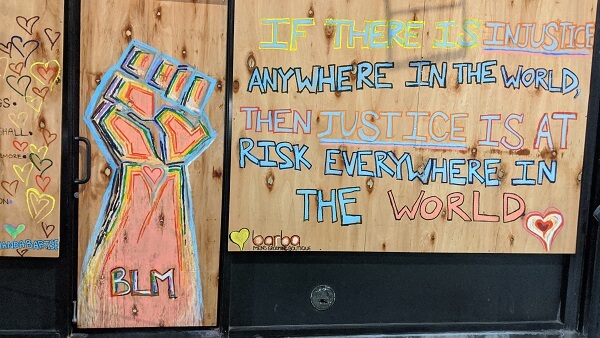 GS.
HALL.
MORE.
ON
BLM
IF THERE IS INJUSTICE
ANYWHERE IN THE WORLD,
THEN JUSTICE IS AT
RISK EVERYWHERE IN
THE WORLD
barba
MEN'S GROOMING BOUTIQUE